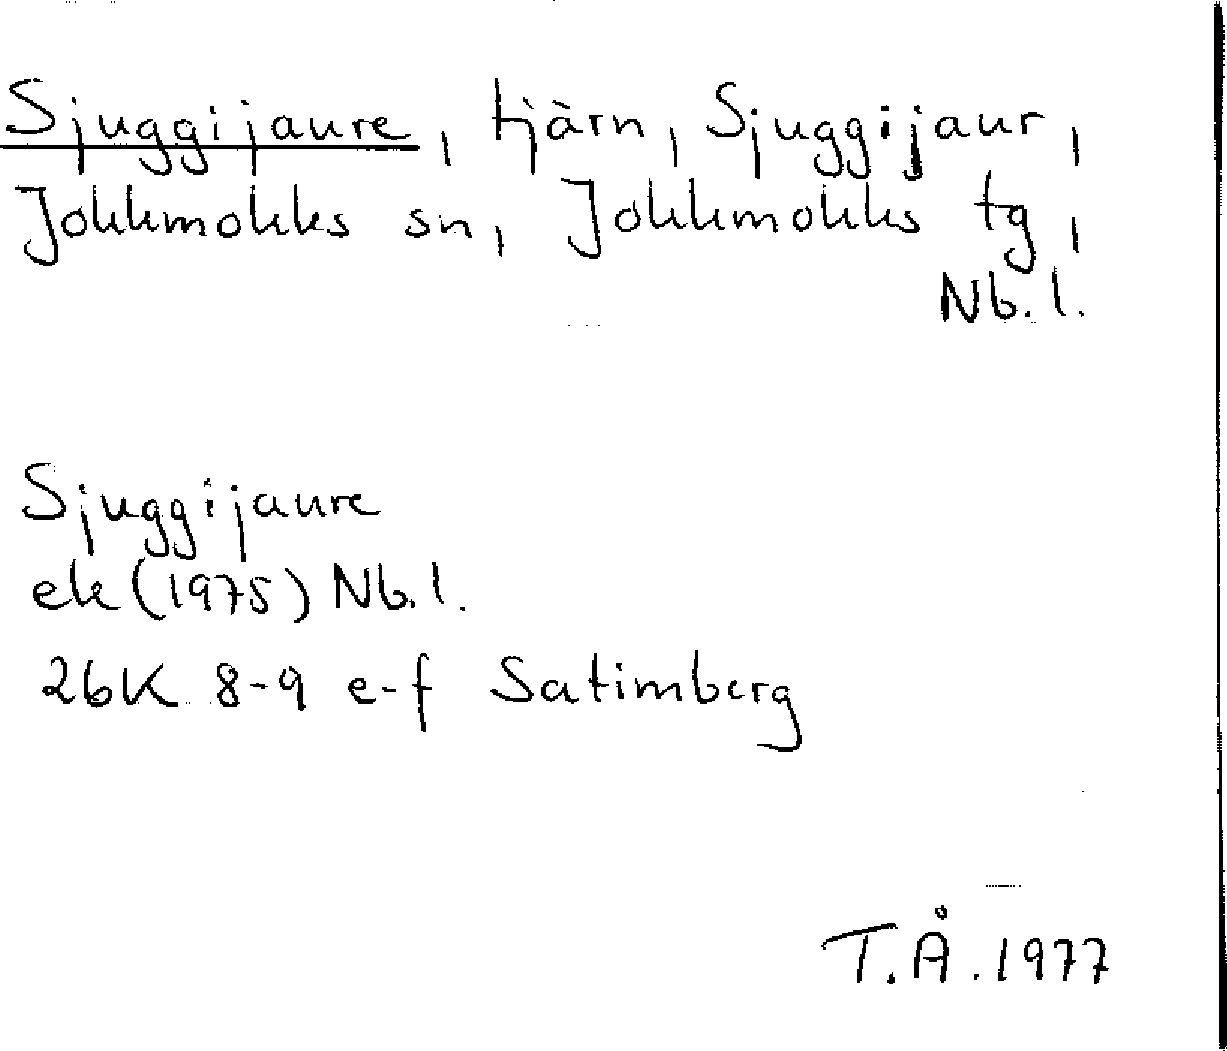 Sjuggijaure, tjärn, Sjuggijaur,
Jokkmokks sn, Jokkmokks tg,
Nb.l.
Sjuggijaure
ek (1975) Nb.l.
26K 8-9 e-f Satimberg
T.Å. 1977